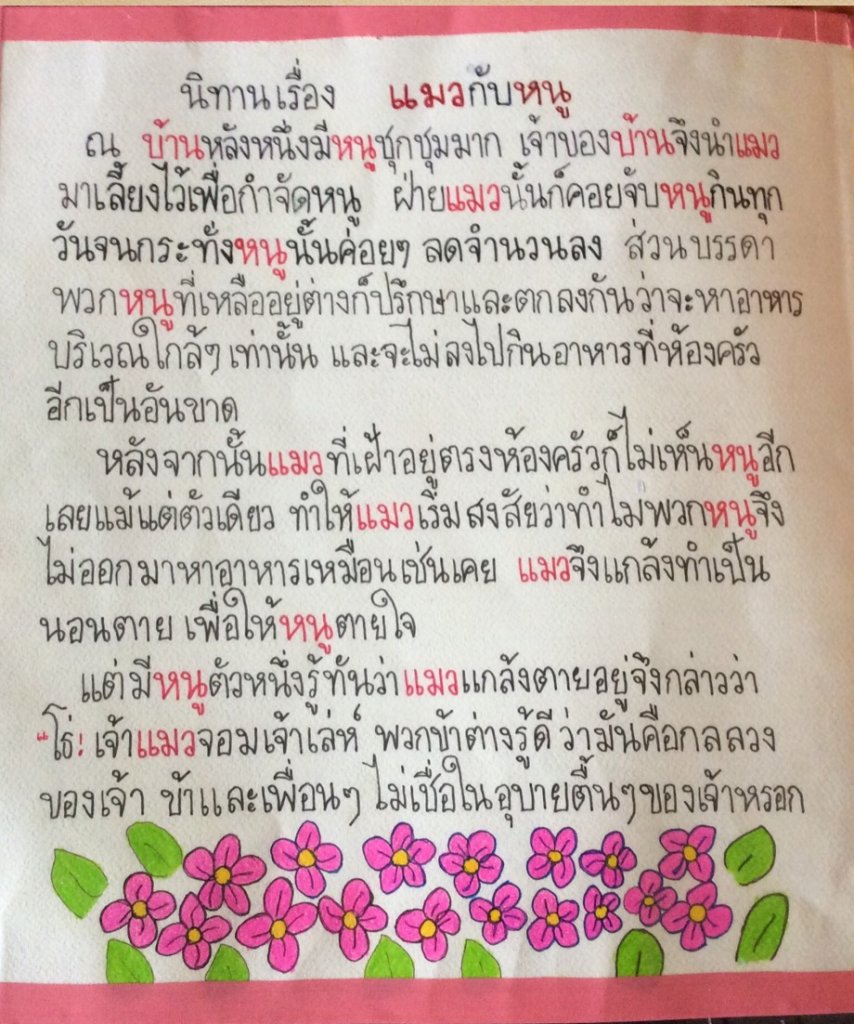 นิทานเรื่อง แมวกับหนู
ณ บ้านหลังหนึ่งมีหนูชุกชุมมาก เจ้าของบ้านจึงนำแมว
มาเลี้ยงไว้เพื่อกำจัดหนู ฝ่ายแมวนั้นก็คอยจับหนูกินทุก
วันจนกระทั่งหนูนั้นค่อยๆ ลดจำนวนลง ส่วนบรรดา
พวกหนูที่เหลืออยู่ต่างก็ปรึกษาและตกลงกันว่าจะหาอาหาร
บริเวณใกล้ๆ เท่านั้น และจะไม่ลงไปกินอาหารที่ห้องครัว
อีกเป็นอันขาด
หลังจากนั้นแมวที่เฝ้าอยู่ตรงห้องครัวก็ไม่เห็นหนูอีก
เลยแม้แต่ตัวเดียว ทำให้แมวเริ่มสงสัยว่าทำไมพวกหนูจึง
ไม่ออกมาหาอาหารเหมือนเช่นเคย แมวจึงแกล้งทำเป็น
นอนตาย เพื่อให้หนูตายใจ
แต่มีหนูตัวหนึ่งรู้ทันว่าแมวแกล้งตายอยู่จึงกล่าวว่า
“โธ่! เจ้าแมวจอมเจ้าเล่ห์ พวกข้าต่างรู้ดี ว่ามันคือกลลวง
ของเจ้า ข้าและเพื่อนๆ ไม่เชื่อในอุบายตื้นๆของเจ้าหรอก